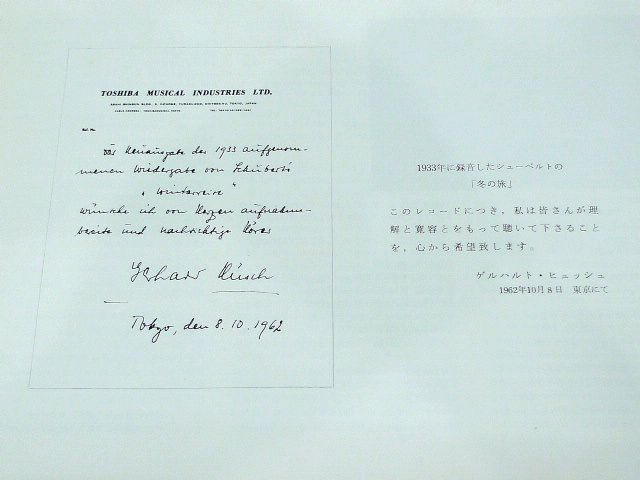 TOSHIBA MUSICAL INDUSTRIES LTD.
der Neuausgabe der 1933 aufgenom-
menen Wiedergabe von Schubert's
„Winterreise"
wünsche ich von Herzen aufnahme-
bereite und nachsichtige Hörer
Gerhard Hüsch
Tokyo, den 8.10.1962
1933年に録音したシューベルトの
「冬の旅」
このレコードにつき，私は皆さんが理
解と寛容とをもって聴いて下さること
を，心から希望致します。
ゲルハルト・ヒュッシュ
1962年10月8日　東京にて